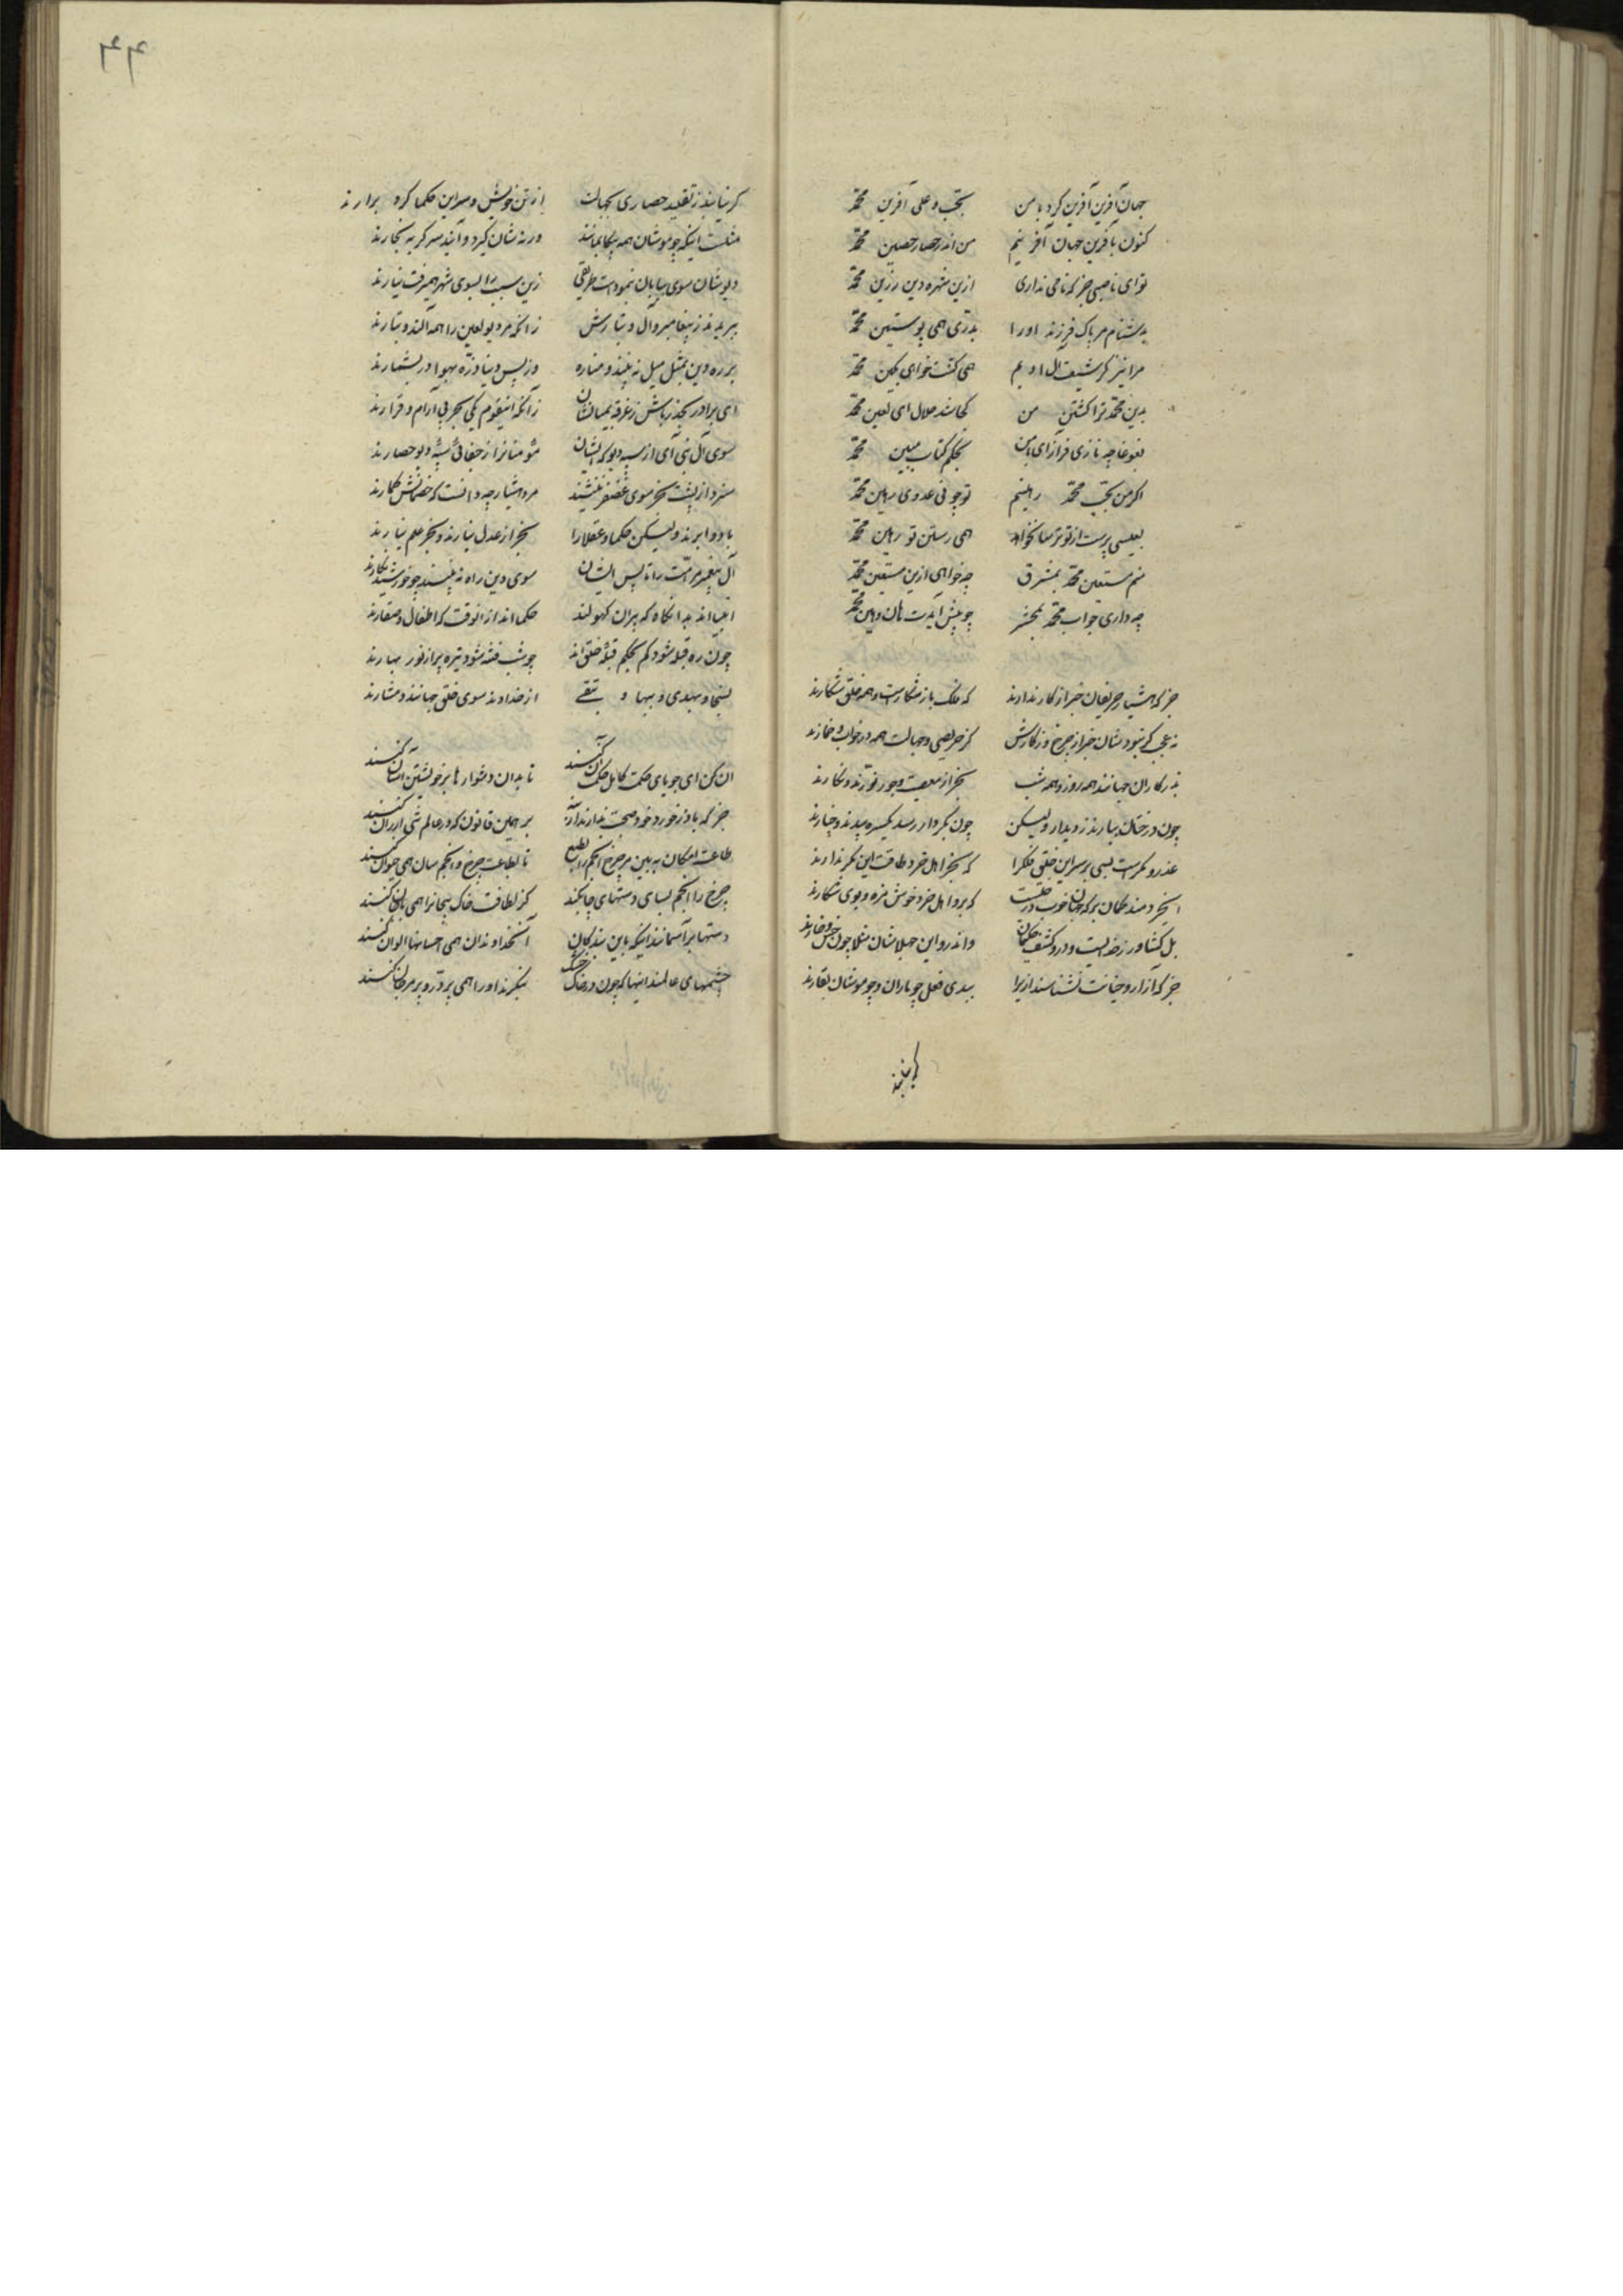 جهان آفرین آفرین کرد با من    بحب و علی آفرین محمد
کنون بافرین جهان آفرینم    من اندر حصار حصین محمد
توای ناصبی جز که نامی نداری    ازین شهره دین رزین محمد
بدشنام مر پاک فرزند اورا    بدری همی پوستین محمد
مرا نیز کز شیعت آل اویم    همی کشت خواهی بکین محمد
بدین محمد ترا کشتن من    کجا شد حلال ای لعین محمد
بغوغا چه نازی فراز ای با من    بحکم کتاب مبین محمد
اکر من بحب محمد رهینم    تو چونی عدوی رهین محمد
بعیسی پرست از تو ترسا نخواهد    همی رستن تو رهین محمد
منم مستعین محمد بمشرق    چه خواهی ازین مستعین محمد
چه داری جواب محمد بمحشر    چو پیش آیدت هان و هین محمد
جز که هشیار حریفان خبر از کار ندارند    که فلک باز شکارست و همه خلق شکارند
نه عجب کر نبود شان خبر از چرخ و ز کارش    کز حریصی و جهالت همه در خواب و خمارند
بد کاران جهانند همه روز و همه شب    بجز از معصیت و جور نورزند و نکارند
چون درختان ببارند ز دیدار ولیکن    چون بکردار رسد یکسره بیدند و چنارند
غدر و مکرست بسی بر سر این خلق فلک را    که بجز اهل خرد طاقت این مکر ندارند
ای خردمند کمان بر که جهان خوب درختیست    که برو اهل خرد خوش مزه و بوی ثمارند
بل کشاور زخدایست و درو کشت حکیمان    واندرو این جهلا شان مثلا چون خس و خارند
جز که آزار و خیانت نشناسند ازیرا    ببدی فعل چو ماران و چو موشان بقارند
کر نیایند
۴۴
کر نیایند ز تقلید حصاری بجهالت    از تن خویش و سر این حکما کرد برآرند
مثلست اینکه چو موشان همه بیکار بمانند    دنه شان کیرد و آیند سر کربه بخارند
دیو شان سوی بیابان بنمودست طریقی    زین سبب را بسوی شهر همی رفت نیارند
ببریدند ز پیغامبر و آل و تبارش    زانکه مر دیو لعین را همه آلند و تبارند
بر ره دین بمثل میل نه بینند و مناره    وز پس دنیا ذره بهوا در بشمارند
ای برادر بحذر باش ز غرقه بمیانشان    زانکه اینقوم یکی بحر بی آرام و قرارند
سوی آل نبی آی از سپه دیو که ایشان    مؤمنانرا ز جفای سپه دیو حصارند
سزد از پشت بخر سوی غضنفر ننشیند    مرد هشیار چو دانست که خصمانش حمارند
باد و ابرند ولیکن حکما و عقلا را    بجز از عدل نبارند و بجز علم نیارند
آل پیغمبر مر امت را تا پس ایشان    سوی دین راه نه بینند چو خورشید نکارند
انبیا اند بدانکاه که پیران کهولند    حکما اند ازانوقت که اطفال و صغارند
چون ره قبله شود کم بحکم قبلهٔ خلق اند    چو شب فتنه شود تیره پر از نور نهارند
بسخا و بهدی و ببها و بتقی    از خداوند سوی خلق جهانند و مشارند
ان کن ای جویای حکمت کاهل حکمت آن کنند    تا بدان دشوارها بر خویشتن آسان کنند
بر همین قانون که در عالم همی ارکان کنند
تا بطاعت چرخ و انجم سان همی حیوان کنند
چرخ را انجم بسان دستهای چابکند    کز لطافت خاک بیجانرا همی با جان کنند
دستها بر آسمانند اینکه با این بندکان    آن خداوندان همی احسانها الوان کنند
چشمهای عالمند اینها که چون در خاک خشک    بنکرند اورا همی پر در و پر مرجان کنند